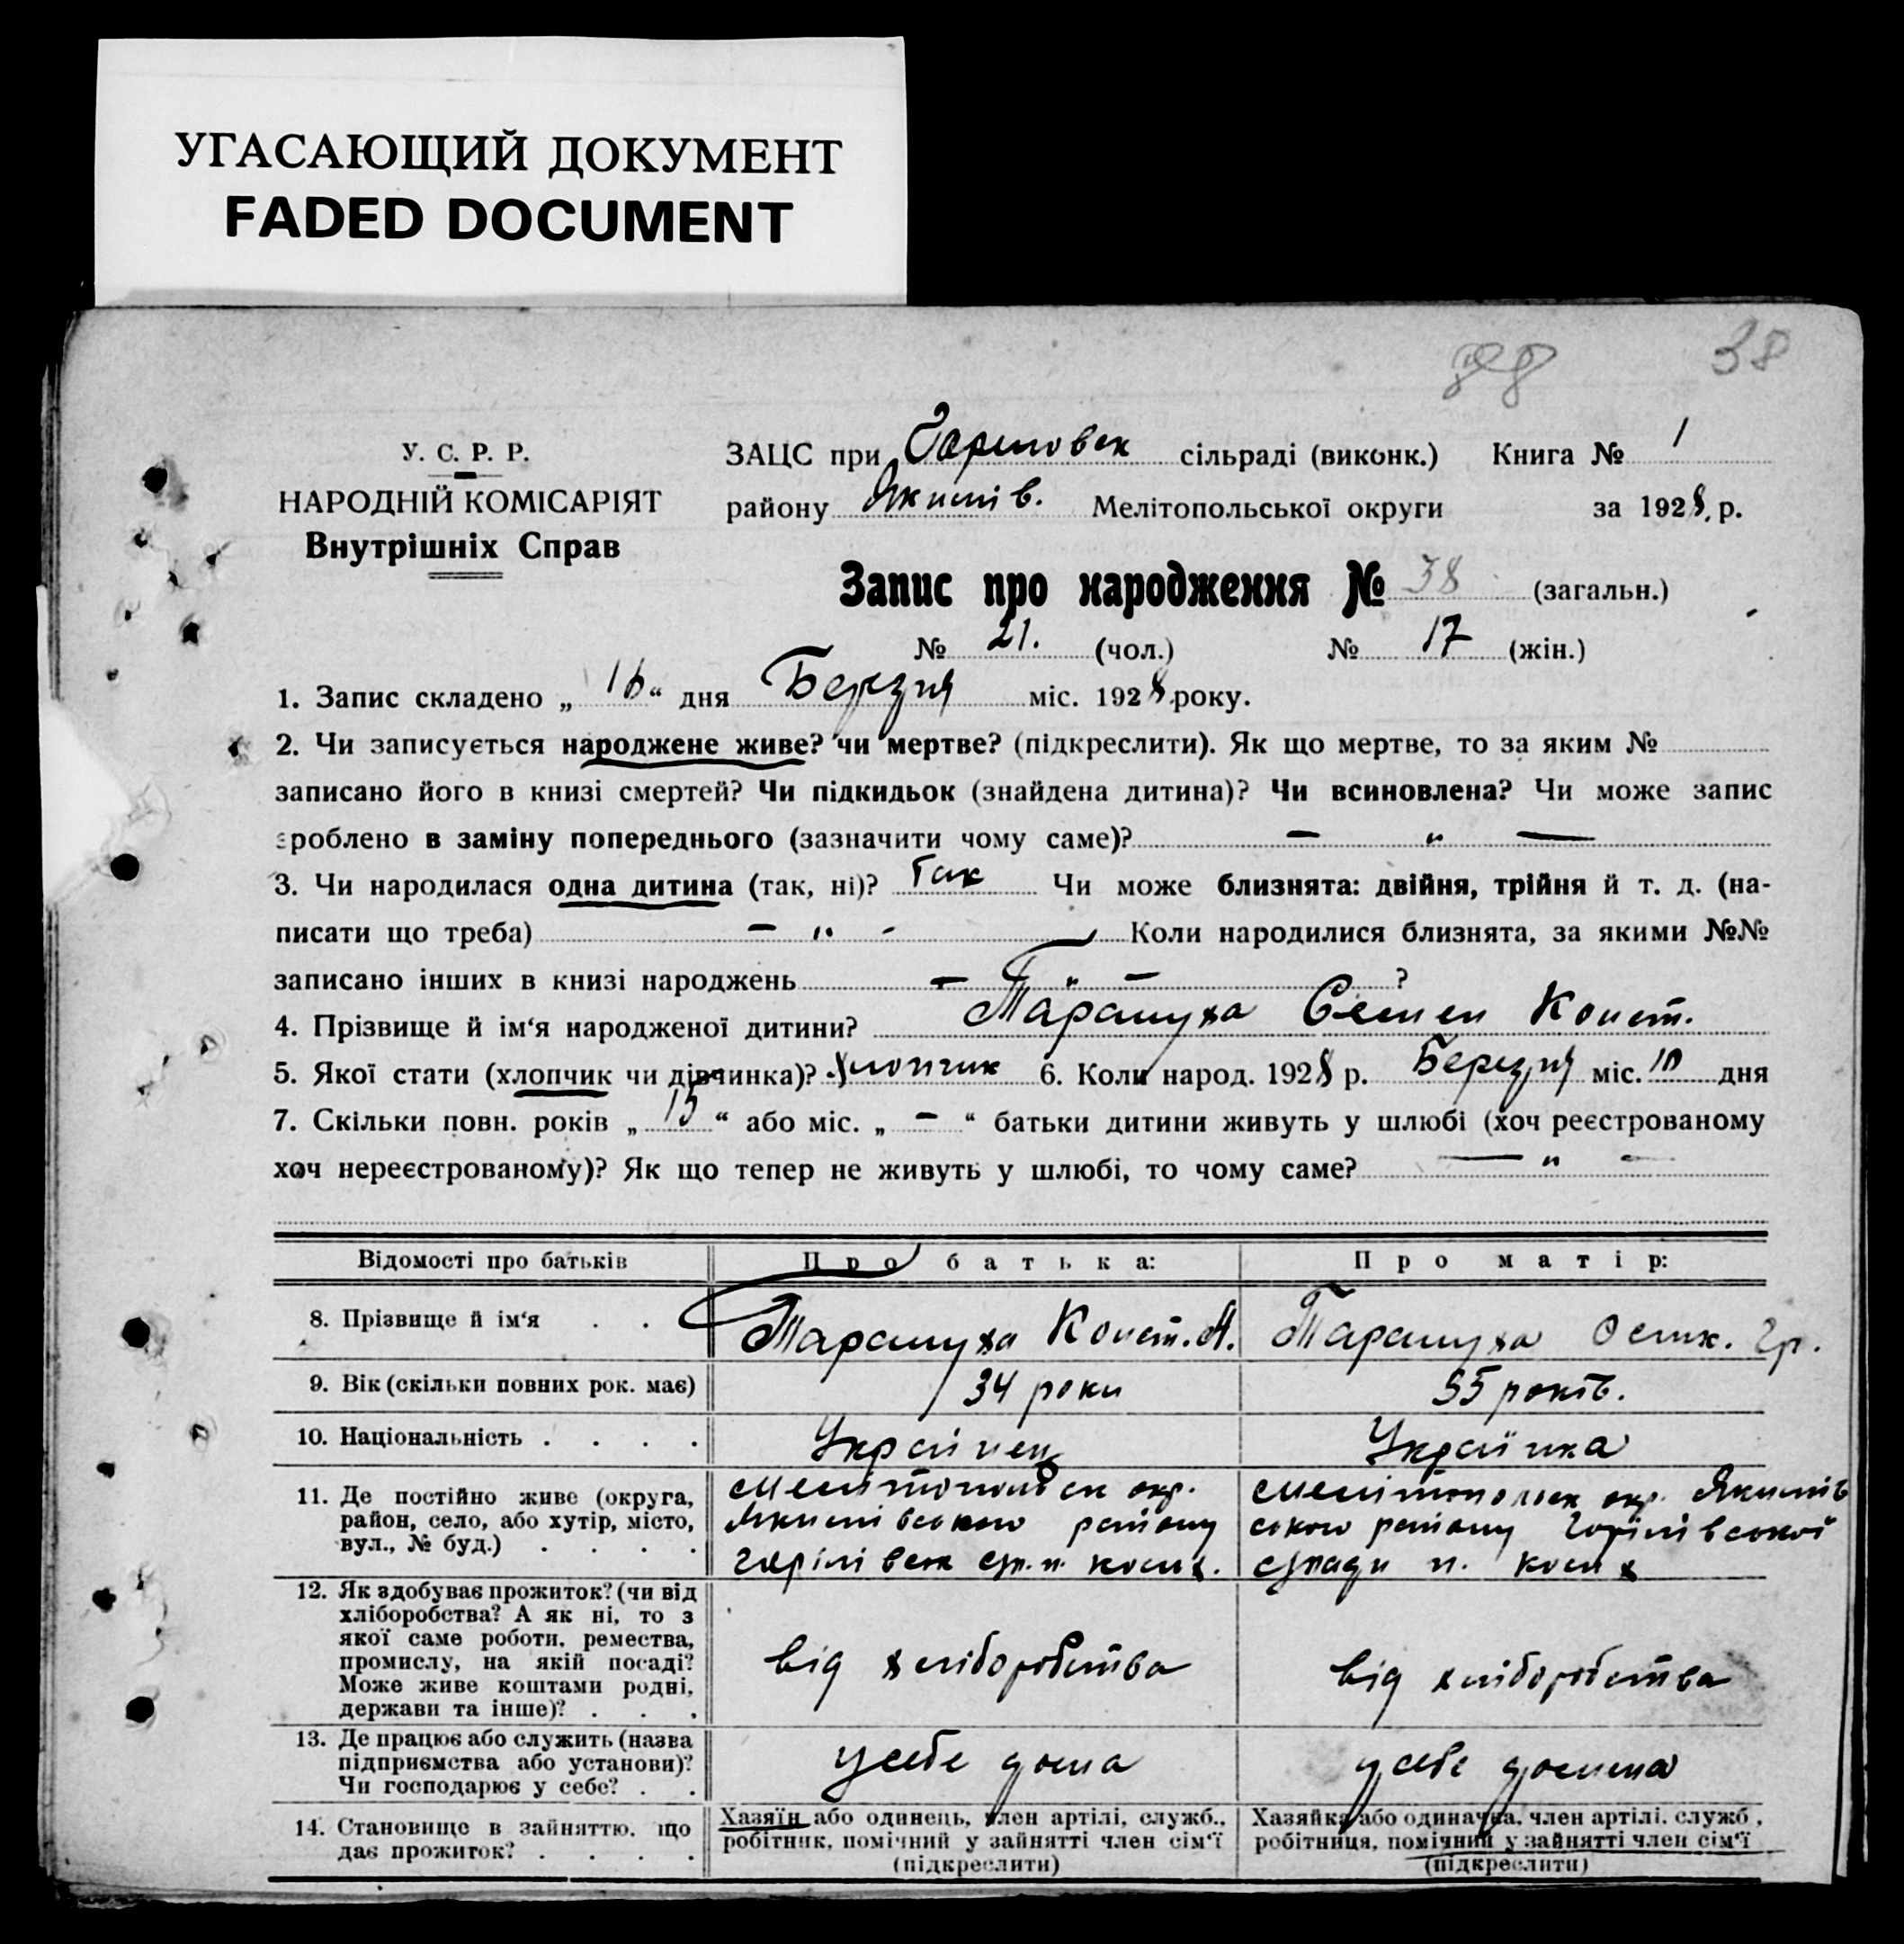 УГАСАЮЩИЙ ДОКУМЕНТ
FADED DOCUMENT
38
У. С. Р. Р.
НАРОДНІЙ КОМІСАРІЯТ
Внутрішніх Справ
ЗАЦС при сільраді (виконк.) Книга № 1
району Якимів. Мелітопольської округи за 1928 р.
Запис про народження № 38 (загальн.)
№ 21. (чол.) № 17 (жін.)
1. Запис складено „ 16 “ дня Березня міс. 1928 року.
2. Чи записується народжене живе? чи мертве? (підкреслити). Як що мертве, то за яким №
записано його в книзі смертей? Чи підкидьок (знайдена дитина)? Чи всиновлена? Чи може запис
зроблено в заміну попереднього (зазначити чому саме)? — „ —
3. Чи народилася одна дитина (так, ні)? Так Чи може близнята: двійня, трійня й т. д. (на-
писати що треба) — „ — Коли народилися близнята, за якими №№
записано інших в книзі народжень — „ — ?
4. Прізвище й ім‘я народженої дитини? Тарануха Семен Конст.
5. Якої стати (хлопчик чи дівчинка)? Хлопчик 6. Коли народ. 1928 р. Березня міс. 10 дня
7. Скільки повн. років „ 15 “ або міс. „ — “ батьки дитини живуть у шлюбі (хоч реєстрованому
хоч нереєстрованому)? Як що тепер не живуть у шлюбі, то чому саме? — „ —
Відомості про батьків Про батька: Про матір:
8. Прізвище й ім‘я . . Тарануха Конст. А. Тарануха Гр.
9. Вік (скільки повних рок. має) 34 роки 35 років.
10. Національність . . . . Українец Українка
11. Де постійно живе (округа,
район, село, або хутір, місто,
вул., № буд.) . . . .
Мелітопольск окр.
Якимівського району
Мелітопольск окр. Якимів
ського району
12. Як здобуває прожиток? (чи від
хліборобства? А як ні, то з
якої саме роботи, ремества,
промислу, на якій посаді?
Може живе коштами родні,
держави та інше)? . . .
від хліборобства від хліборобства
13. Де працює або служить (назва
підприємства або установи)?
Чи господарює у себе? . .
у себе дома у себе дома
14. Становище в зайняттю, що
дає прожиток? . . . .
Хазяїн або одинець, член артілі, служб.,
робітник, помічний у зайнятті член сім‘ї
(підкреслити)
Хазяйка або одиначка, член артілі, служб.,
робітниця, помічний у зайнятті член сім‘ї
(підкреслити)